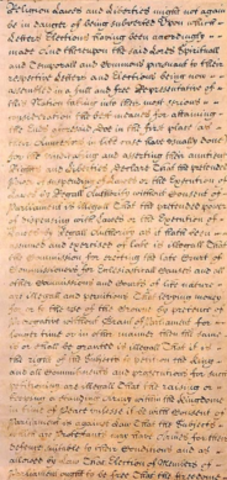 Religion Lawes and Liberties might not againe
be in danger of being subverted Upon which
Letters Elections having been accordingly
made And thereupon the said Lords Spirituall
and Temporall and Commons pursuant to their
respective Letters and Elections being now
assembled in a full and free Representative of
this Nation taking into their most serious
consideration the best meanes for attaining
the Ends aforesaid Doe in the first place as
their Auncestors in like case have usually done
for the vindicating and asserting their auntient
Rights and Liberties Declare That the pretended
Power of Suspending of Lawes or the Execution of
Lawes by Regall Authority without Consent of
Parliament is illegall That the pretended power
of dispensing with Lawes or the Execution of
Lawes by Regall Authority as it hath been
assumed and exercised of late is illegall That
the Commission for erecting the late Court of
Commissioners for Ecclesiasticall Causes and all
other Commissions and Courts of like nature
are illegall and pernitious That levying money
for or to the use of the Crowne by pretence of
Prerogative without Grant of Parliament for
longer time or in other manner then the same
is or shall be granted is illegall That it is
the right of the Subjects to petition the King
and all Commitments and prosecutions for such
petitioning are illegall That the raising or
keeping a standing Army within the Kingdome
in time of Peace unlesse it be with Consent of
Parliament is against Law That the Subjects
which are Protestants may have Armes for their
defence suitable to their Conditions and as
allowed by Law That Election of Members of
Parliament ought to be free That the freedome